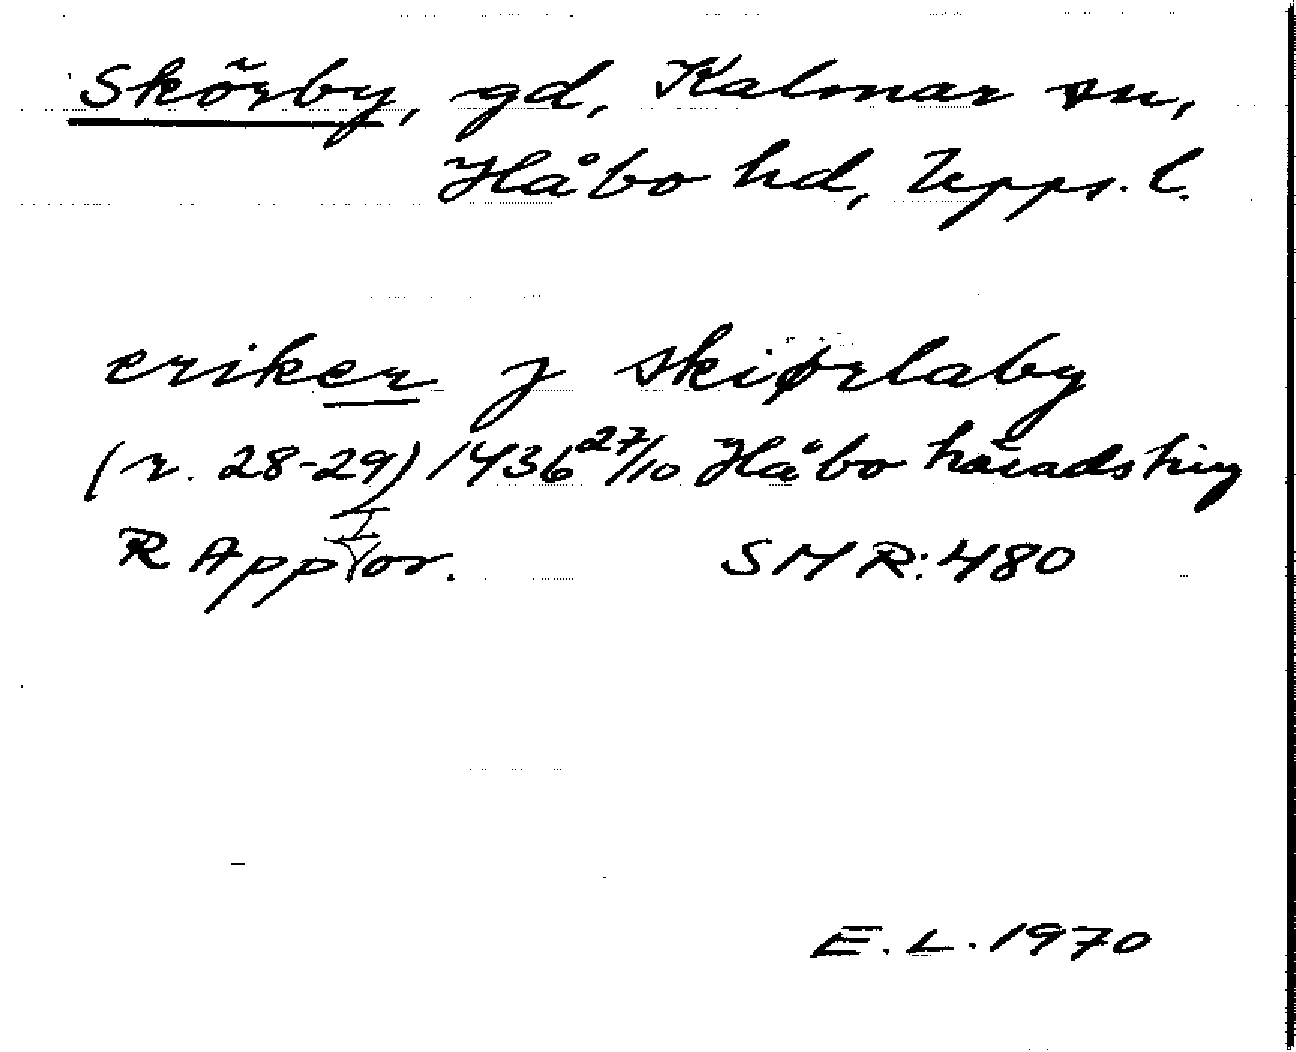 Skörby, gd, Kalmar sn,
Håbo hd, Upps. l.
eriker j skiørlaby
(r. 28-29) 1436 27/10 Håbo häradsting
R App I or.   SMR: 480
E. L. 1970